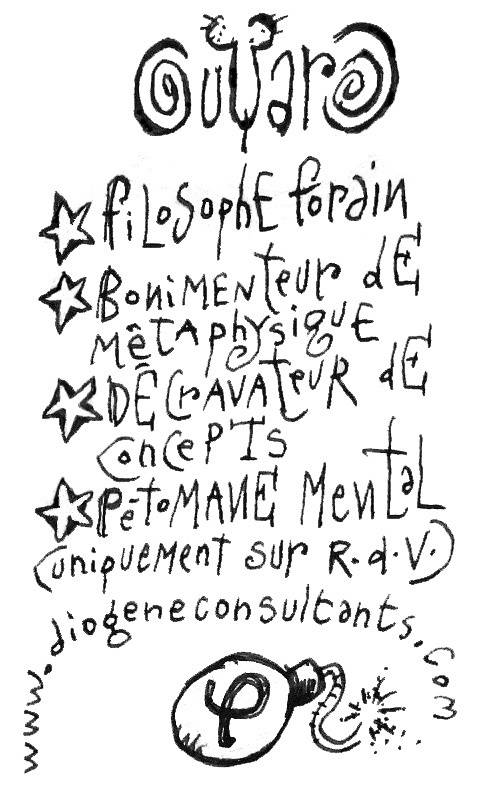 filosophE forain
BoniMENteur dE
MêtAphysiquE
DÊCrAVAteuR dE
ConcePTs
PêtoMANE MentaL
(uniqueMent sur R.d.V.)
www.diogeneconsultants.com
φ